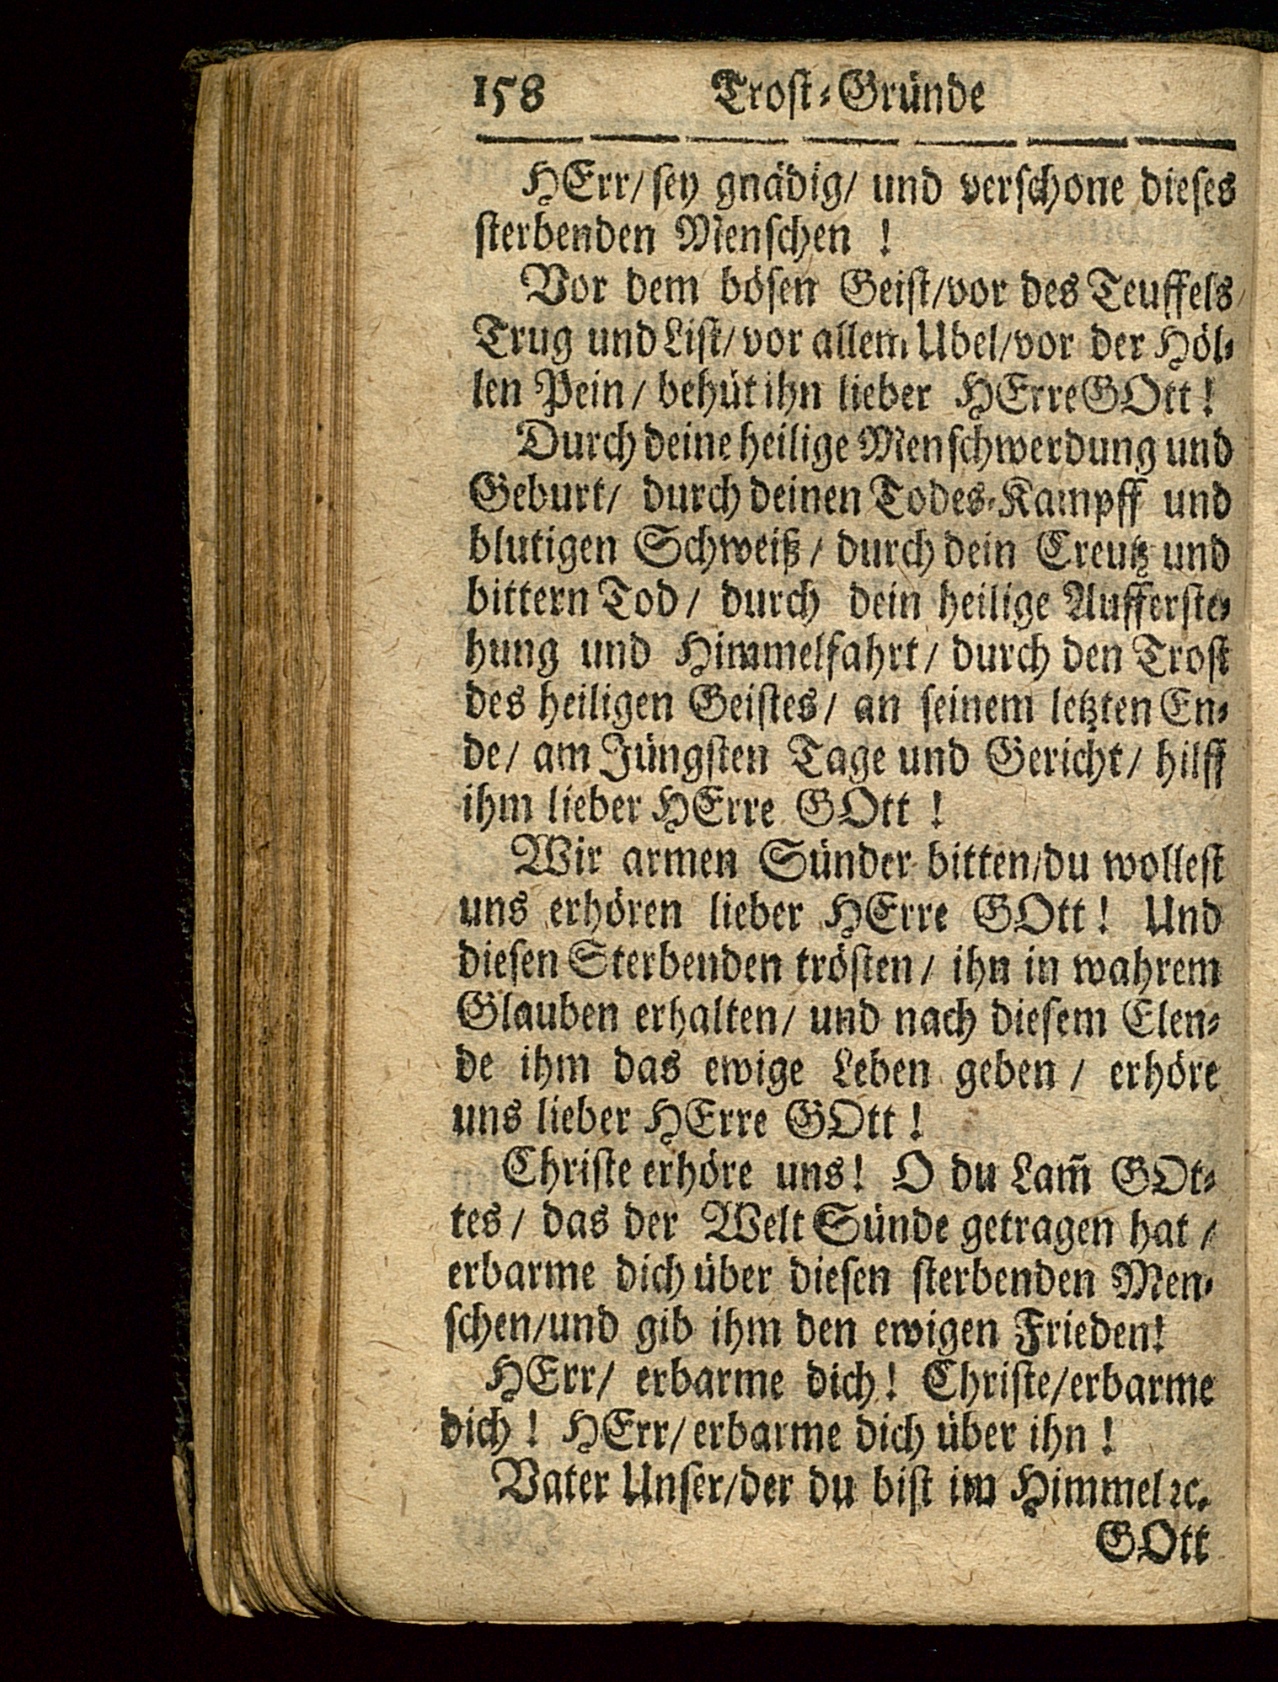 158 Trost-Gründe
HErr/ sey gnädig/ und verschone dieses
sterbenden Menschen !
Vor dem bösen Geist/vor des Teuffels
Trug und List/ vor allem Ubel/vor der Höl-
len Pein / behüt ihn lieber HErre GOtt !
Durch deine heilige Menschwerdung und
Geburt/ durch deinen Todes-Kampff und
blutigen Schweiß / durch dein Creutz und
bittern Tod / durch dein heilige Aufferste-
hung und Himmelfahrt / durch den Trost
des heiligen Geistes/ an seinem letzten En-
de/ am Jüngsten Tage und Gericht/ hilff
ihm lieber HErre GOtt !
Wir armen Sünder bitten/du wollest
uns erhören lieber HErre GOtt! Und
diesen Sterbenden trösten/ ihn in wahrem
Glauben erhalten/ und nach diesem Elen-
de ihm das ewige Leben geben / erhöre
uns lieber HErre GOtt !
Christe erhöre uns! O du Lam̃ GOt-
tes / das der Welt Sünde getragen hat /
erbarme dich über diesen sterbenden Men-
schen/und gib ihm den ewigen Frieden!
HErr/ erbarme dich! Christe/erbarme
dich ! HErr/ erbarme dich über ihn !
Vater Unser/der du bist im Himmel ꝛc.
GOtt